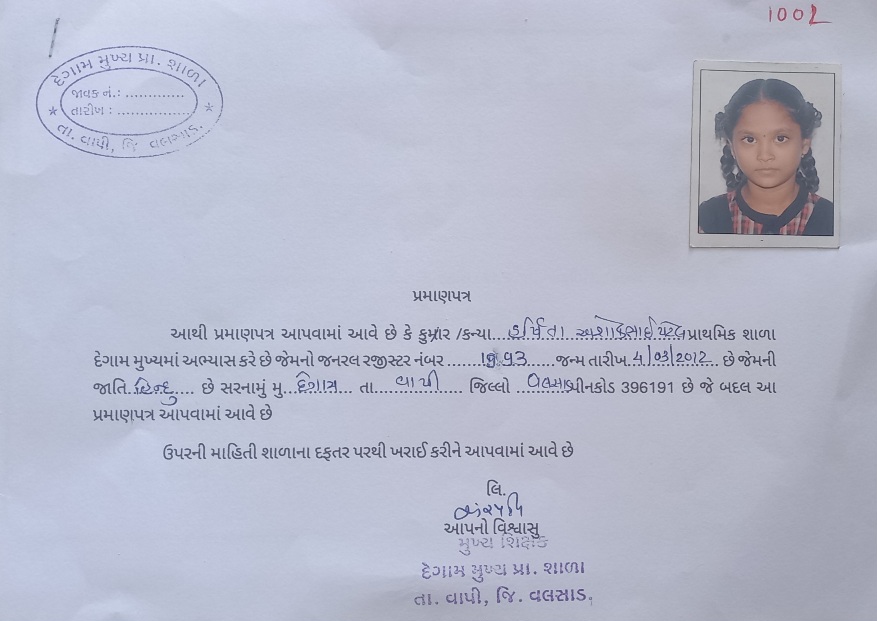 1002
દેગામ મુખ્ય પ્રા. શાળા
જાવક નં.: .............
તારીખ : .................
તા. વાપી, જિ. વલસાડ.
પ્રમાણપત્ર
આથી પ્રમાણપત્ર આપવામાં આવે છે કે કુમાર /કન્યા...હર્ષિતા અશોકભાઈ પટેલ પ્રાથમિક શાળા
દેગામ મુખ્યમાં અભ્યાસ કરે છે જેમનો જનરલ રજીસ્ટર નંબર ..............જન્મ તારીખ 4/03/2012 છે જેમની
જાતિ હિન્દુ..... છે સરનામું મુ...દેગામ... તા....વાપી.... જિલ્લો ..વલસાડ પીનકોડ 396191 છે જે બદલ આ
પ્રમાણપત્ર આપવામાં આવે છે
ઉપરની માહિતી શાળાના દફતર પરથી ખરાઈ કરીને આપવામાં આવે છે
લિ.
આપનો વિશ્વાસુ
મુખ્ય શિક્ષક
દેગામ મુખ્ય પ્રા. શાળા
તા. વાપી, જિ. વલસાડ.